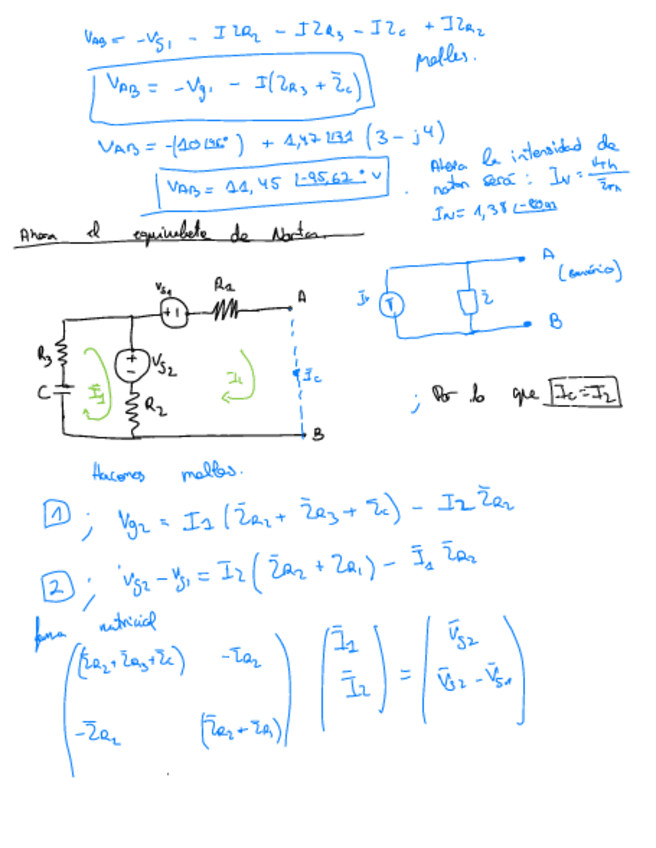 V_AB = -V_g1 - I Z_R2 - I Z_R3 - I Z_c + I Z_R2
Mallas.
V_AB = -V_g1 - I(Z_R3 + Z̄_c)
(3 - j4)
V_AB = 11,45 ∠-95,62° V
Ahora la intensidad de
será : I_N = V_Th / Z_Th
I_N = 1,38
Ahora el equivalente de Norton.
R_1
A
+ -
R_3
C
I_1
+
-
V_s2
R_2
I_2
I_c
B
I_N
Z̄
A
B
; Por lo que I_c = I_2
Hacemos mallas.
1 ; V_g2 = I_1 (Z̄_R2 + Z̄_R3 + Z_c) - I_2 Z̄_R2
2 ; V_s2 - V_g1 = I_2 (Z̄_R2 + Z_R1) - Ī_1 Z̄_R2
forma matricial
(Z̄_R2 + Z̄_R3 + Z̄_c) -Z̄_R2 Ī_1 = V̄_s2
-Z̄_R2 (Z̄_R2 + Z̄_R1) Ī_2 V̄_s2 - V̄_s1